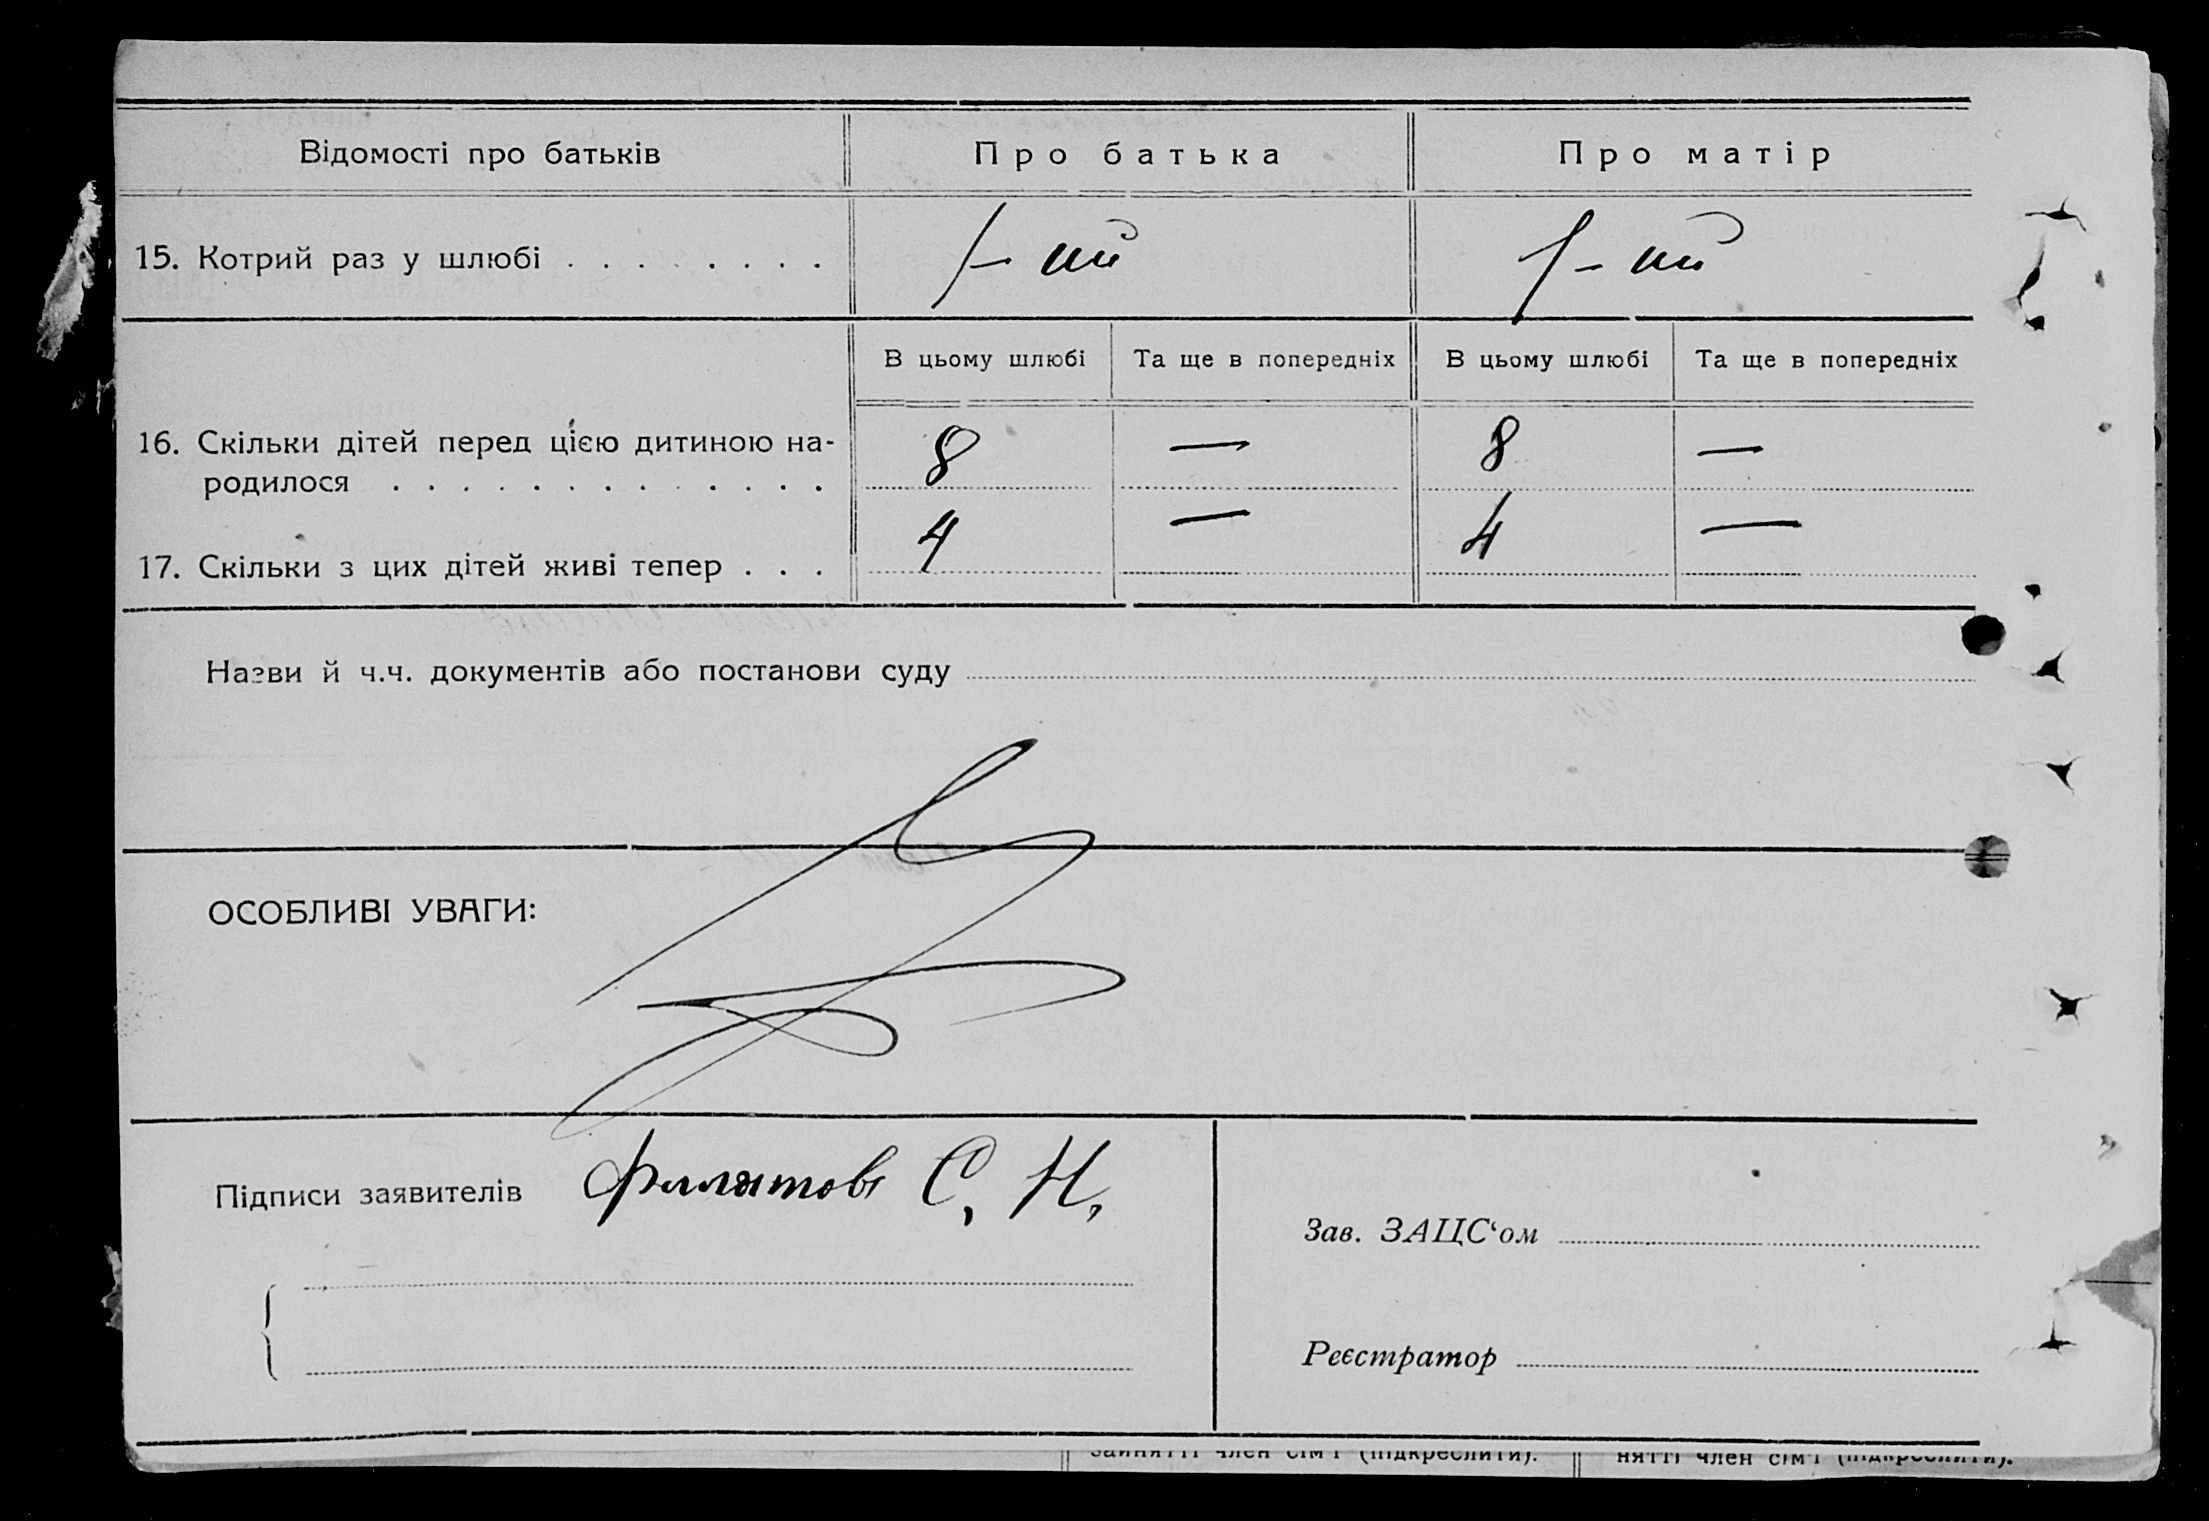 Відомості про батьків Про батька Про матір
15. Котрий раз у шлюбі . . . . . . . . 1-ий 1-ий
В цьому шлюбі Та ще в попередніх В цьому шлюбі Та ще в попередніх
16. Скільки дітей перед цією дитиною на-
родилося . . . . . . . . . . . . . 8 — 8 —
17. Скільки з цих дітей живі тепер . . . 4 — 4 —
Назви й ч.ч. документів або постанови суду
ОСОБЛИВІ УВАГИ:
Підписи заявителів Филатов С. Н.
Зав. ЗАЦС‘ом
Реєстратор
зайнятті член сім'ї (підкреслити). нятті член сім'ї (підкреслити).